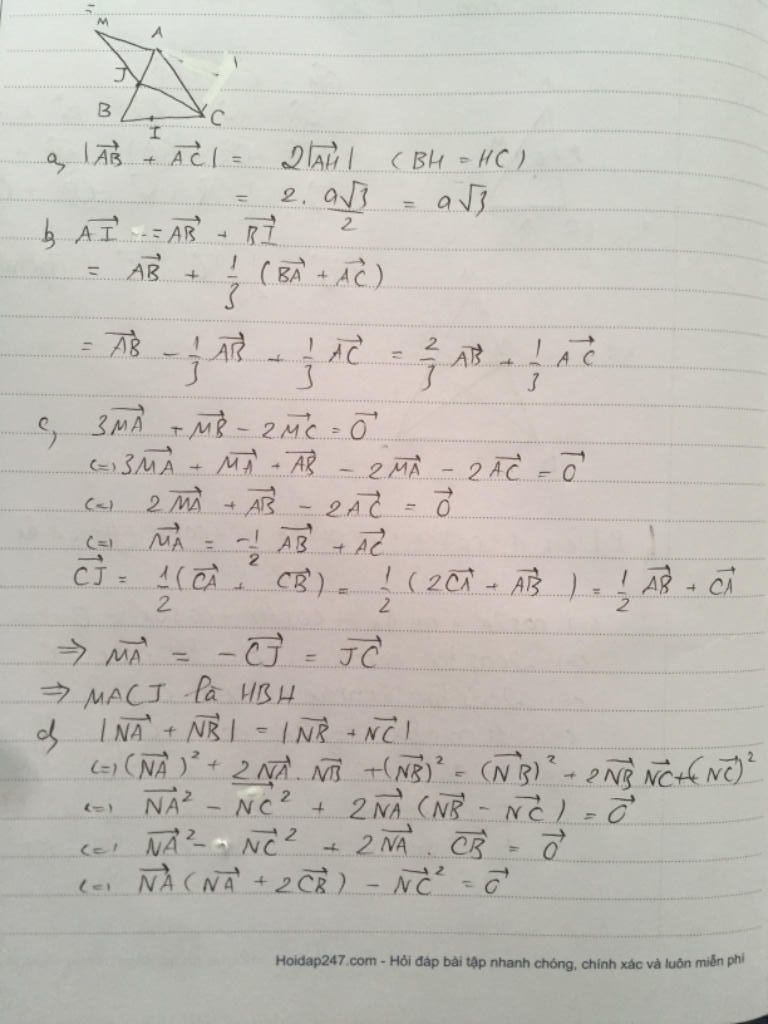 M
A
J
B
I
C
a, |AB⃗ + AC⃗| = 2|AH⃗| (BH = HC)
= 2. a√3/2 = a√3
b, AI⃗ = AB⃗ + BI⃗
= AB⃗ + 1/3 (BA⃗ + AC⃗)
= AB⃗ - 1/3 AB⃗ + 1/3 AC⃗ = 2/3 AB⃗ + 1/3 AC⃗
c, 3MA⃗ + MB⃗ - 2MC⃗ = 0⃗
<=> 3MA⃗ + MA⃗ + AB⃗ - 2MA⃗ - 2AC⃗ = 0⃗
<=> 2MA⃗ + AB⃗ - 2AC⃗ = 0⃗
<=> MA⃗ = -1/2 AB⃗ + AC⃗
CJ⃗ = 1/2 (CA⃗ + CB⃗) = 1/2 (2CA⃗ + AB⃗) = 1/2 AB⃗ + CA⃗
=> MA⃗ = -CJ⃗ = JC⃗
=> MACJ là HBH
d, |NA⃗ + NB⃗| = |NB⃗ + NC⃗|
<=> (NA⃗)² + 2NA⃗. NB⃗ + (NB⃗)² = (NB⃗)² + 2NB⃗ NC⃗ + (NC⃗)²
<=> NA⃗² - NC⃗² + 2NA⃗ (NB⃗ - NC⃗) = 0⃗
<=> NA⃗² - NC⃗² + 2NA⃗ . CB⃗ = 0⃗
<=> NA⃗ (NA⃗ + 2CB⃗) - NC⃗² = 0⃗
Hoidap247.com - Hỏi đáp bài tập nhanh chóng, chính xác và luôn miễn phí